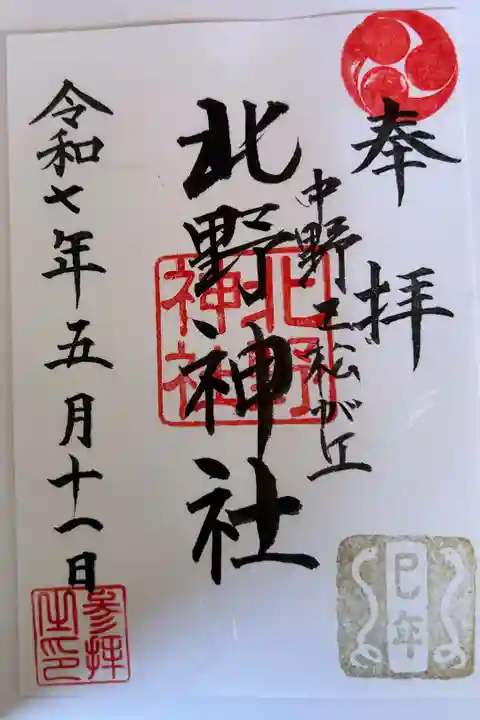 奉拝
中野区松が丘
北野神社
北野神社
令和七年五月十一日
参拝之印
巳年